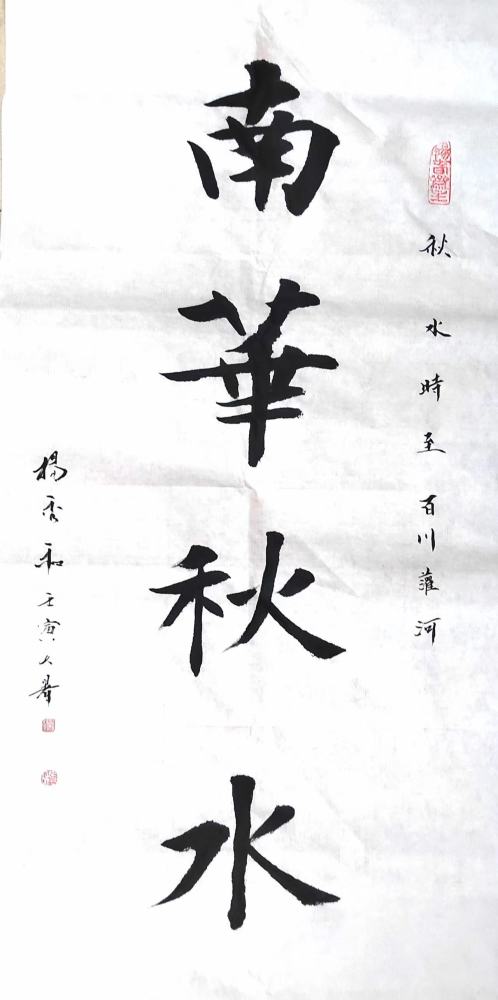 秋水時至百川灌河
南華秋水
楊香和壬寅大暑